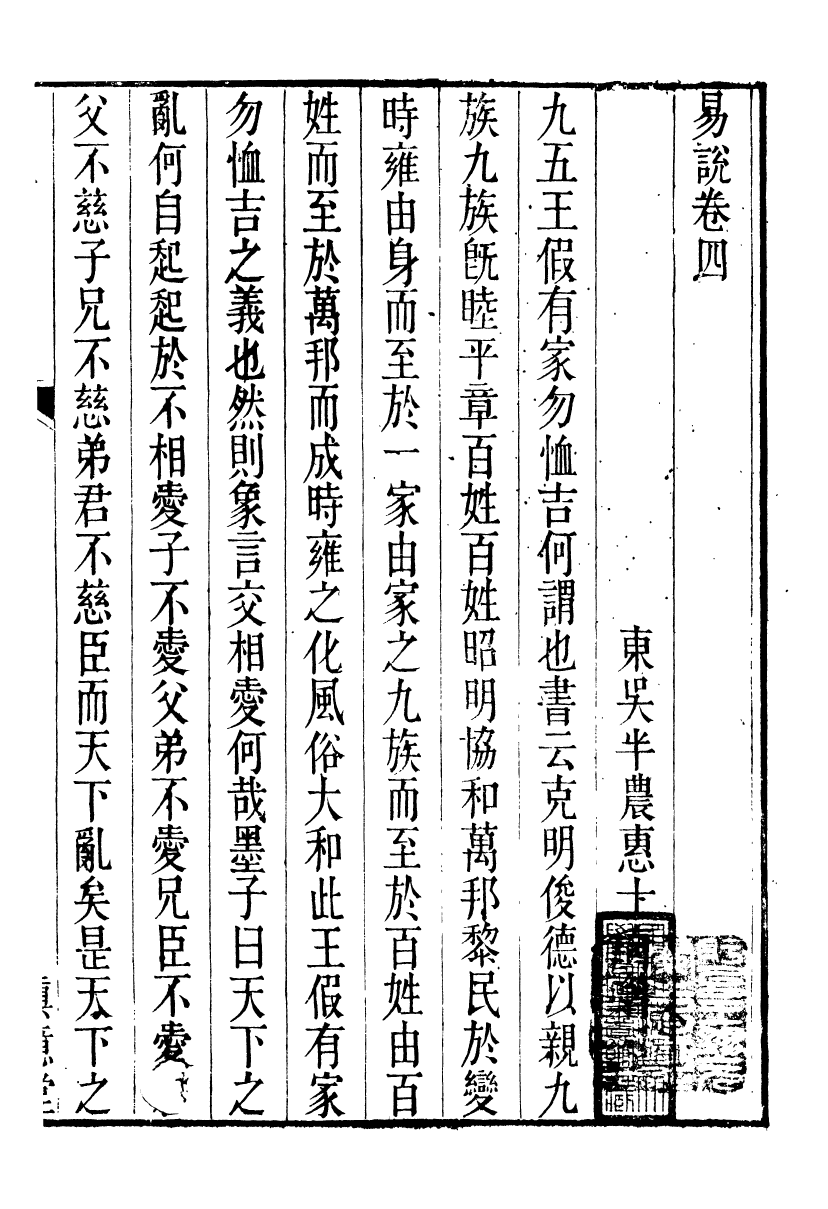 易說卷四
東吳半農惠士
九五王假有家勿恤吉何謂也書云克明俊德以親九
族九族旣睦平章百姓百姓昭明協和萬邦黎民於變
時雍由身而至於一家由家之九族而至於百姓由百
姓而至於萬邦而成時雍之化風俗大和此王假有家
勿恤吉之義也然則象言交相愛何哉墨子曰天下之
亂何自起起於不相愛子不愛父弟不愛兄臣不愛
父不慈子兄不慈弟君不慈臣而天下亂矣是天下之